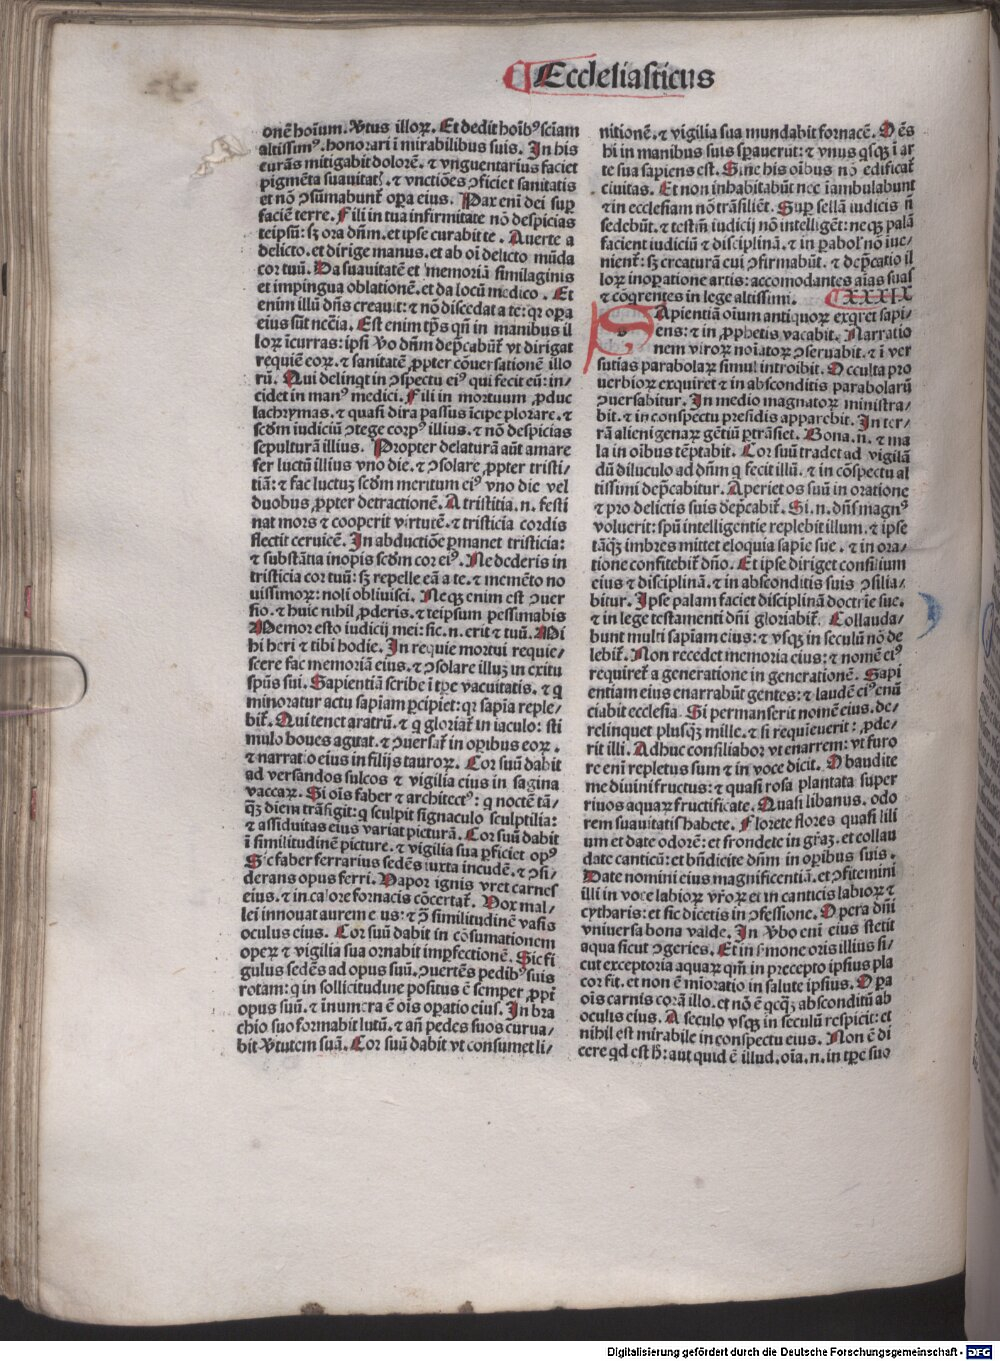 Ecclesiasticus
onē hoīum. Ꝟtus illoꝝ. Et dedit hoībꝰ sciam
altissimꝰ. honorari ī mirabilibus suis. In his
curās mitigabit dolorē. ⁊ vnguentarius faciet
pigmēta suauitatꝭ. ⁊ vnctiōes ꝯficiet sanitatis
et nō ꝯsūmabunt̄ oꝑa eius. Pax eni dei suꝑ
faciē terre. Fili in tua infirmitate nō despicias
teipsū: sꝫ ora dn̄m. et ipse curabit te. Auerte a
delicto. et dirige manus. et ab oī delicto mūda
cor tuū. Da suauitatē et memoriā similaginis
et impingua oblationē. et da locū medico. Et
enim illū dn̄s creauit: ⁊ nō discedat a te: qꝛ oꝑa
eius sūt nc̄cia. Est enim tp̄s qn̄ in manibus il
loꝝ īcurras: ipsi ꝟo dn̄m dep̄cabūt̄ vt dirigat
requiē eoꝝ. ⁊ sanitatē ꝓpter cōuersationē illo
rū. Qui delinqt in ꝯspectu eiꝰ qui fecit eū: in⸗
cidet in manꝰ medici. Fili in mortuum ꝓduc
lachrymas. ⁊ quasi dira passus īcipe plorare. ⁊
scd̄m iudiciū ꝯtege corpꝰ illius. ⁊ nō despicias
sepulturā illius. Propter delaturā aūt amare
fer luctū illius vno die. ⁊ ꝯsolare ꝓpter tristi⸗
tiā: ⁊ fac luctuꝫ scd̄m meritum eiꝰ vno die vel
duobus ꝓpter detractionē. A tristitia. n. festi
nat mors ⁊ cooperit virtutē. ⁊ tristicia cordis
flectit ceruicē. In abductiōe ꝑmanet tristicia:
⁊ substātia inopis scd̄m cor eiꝰ. Ne dederis in
tristicia cor tuū: sꝫ repelle eā a te. ⁊ memēto no
uissimoꝝ: noli obliuisci. Neqꝫ enim est ꝯuer
sio. ⁊ huic nihil ꝓderis. ⁊ teipsum pessimabis
Memor esto iudicij mei: sic. n. erit ⁊ tuū. Mi
hi heri ⁊ tibi hodie. In requie mortui requie⸗
scere fac memoriā eius. ⁊ ꝯsolare illuꝫ in exitu
sp̄us sui. Sapientiā scribe ī tp̄e vacuitatis. ⁊ q
minoratur actu sapīam ꝑcipiet: qꝛ sapīa reple⸗
bit̄. Qui tenet aratrū. ⁊ q gloriat̄ in iaculo: sti
mulo boues agitat. ⁊ ꝯuersat̄ in oꝑibus eoꝝ.
⁊ narratio eius in filijs tauroꝝ. Cor suū dabit
ad versandos sulcos ⁊ vigilia eius in sagina
vaccaꝝ. Sic oīs faber ⁊ architectꝰ: q noctē tā⸗
qꝫ diem trāsigit: q sculpit signaculo sculptilia:
⁊ assiduitas eius variat picturā. Cor suū dabit
ī similitudinē picture. ⁊ vigilia sua ꝑficiet opꝰ
Sic faber ferrarius sedēs iuxta incudē. ⁊ ꝯsi⸗
derans opus ferri. Vapor ignis vret carnes
eius. ⁊ in calore fornacis cōcertat̄. Vox mal⸗
lei innouat aurem eius: ⁊ ꝯ̄ similitudinē vasis
oculus eius. Cor suū dabit in cōsumationem
operꝫ ⁊ vigilia sua ornabit imꝑfectionē. Sic fi
gulus sedēs ad opus suū. ꝯuertēs pedibꝰ suis
rotam: q in sollicitudine positus ē semper ꝓpt̄
opus suū. ⁊ īnumera ē oīs oꝑatio eius. In bra
chio suo formabit lutū. ⁊ añ pedes suos curua⸗
bit ꝟtutem suā. Cor suū dabit vt consumet li⸗
nitionē. ⁊ vigilia sua mundabit fornacē. Oēs
hi in manibus suis sꝑauerūt: ⁊ vnus qsqꝫ ī ar
te sua sapiens est. Sine his oībus nō edificat̄
ciuitas. Et non inhabitabūt nec īambulabunt
⁊ in ecclesiam nō trāsiliēt. Suꝑ sellā iudicis n̄
sedebūt. ⁊ testm̄ iudicij nō intelligēt: neqꝫ palā
facient iudiciū ⁊ disciplinā. ⁊ in ꝑabol' nō iue⸗
nient̄: sꝫ creaturā eui ꝯfirmabūt. ⁊ dep̄catio il
loꝝ inoꝑatione artis: accomodantes aīas suas
⁊ cōqrentes in lege altissimi. XXXIX
SApientiā oium antiquoꝝ exqret sapi⸗
ens: ⁊ in ꝓphetis vacabit. Narratio
nem viroꝝ noīatoꝝ ꝯseruabit. ⁊ ī ver
sutias parabolaꝝ simul introibit. Occulta pro
uerbioꝝ exquiret ⁊ in absconditis parabolarū
ꝯuersabitur. In medio magnatoꝝ ministra⸗
bit. ⁊ in conspectu presidis apparebit. In ter⸗
rā alienigenaꝝ gētiū ꝑtrāsiet. Bona. n. ⁊ ma
la in oībus tēptabit. Cor suū tradet ad vigilā
dū diluculo ad dn̄m q fecit illū. ⁊ in cōspectu al
tissimi dep̄cabitur. Aperiet os suū in oratione
⁊ pro delictis suis dep̄cabit̄. Si. n. dn̄s magnꝰ
voluerit: spū intelligentie replebit illum. ⁊ ipse
tāqꝫ imbres mittet eloquia sapīe sue. ⁊ in ora⸗
tione confitebit̄ dn̄o. Et ipse diriget consilium
eius ⁊ disciplinā. ⁊ in absconditis suis ꝯsilia⸗
bitur. Ipse palam faciet disciplinā doctrīe sue.
⁊ in lege testamenti dn̄i gloriabit̄. Collauda⸗
bunt multi sapīam eius: ⁊ vsqꝫ in seculū nō de
lebit̄. Non recedet memoria eius: ⁊ nomē eiꝰ
requiret̄ a generatione in generationē. Sapi
entiam eius enarrabūt gentes: ⁊ laudē eiꝰ enū
ciabit ecclesia. Si permanserit nomē eius. de⸗
relinquet plusqꝫ mille. ⁊ si requieuerit: ꝓde⸗
rit illi. Adhuc consiliabor vt enarrem: vt furo
re eni repletus sum ⁊ in voce dicit. Obaudite
me diuini fructus: ⁊ quasi rosa plantata super
riuos aquaꝝ fructificate. Quasi libanus. odo
rem suauitatis habete. Florete flores quasi lili
um et date odorē: et frondete in grāꝫ. et collau
date canticū: et bn̄dicite dn̄m in oꝑibus suis.
Date nomini eius magnificentiā. et ꝯfitemini
illi in voce labioꝝ vr̄oꝝ et in canticis labioꝝ ⁊
cytharis: et sic dicetis in ꝯfessione. Opera dn̄i
vniuersa bona valde. In ꝟbo eni eius stetit
aqua sicut ꝯgeries. Et in sermone oris illius si⸗
cut exceptoria aquaꝝ qm̄ in precepto ipsius pla
cor fit. et non ē mīoratio in salute ipsius. Oꝑa
oīs carnis corā illo. et nō ē qcqꝫ absconditū ab
oculis eius. A seculo vsqꝫ in seculū respicit: et
nihil est mirabile in conspectu eius. Non ē di
cere qd est h̄: aut quid ē illud. oīa. n. in tp̄e suo
Digitalisierung gefördert durch die Deutsche Forschungsgemeinschaft - DFG